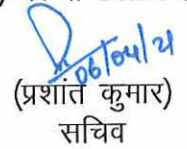 06/04/21
(प्रशांत कुमार)
सचिव